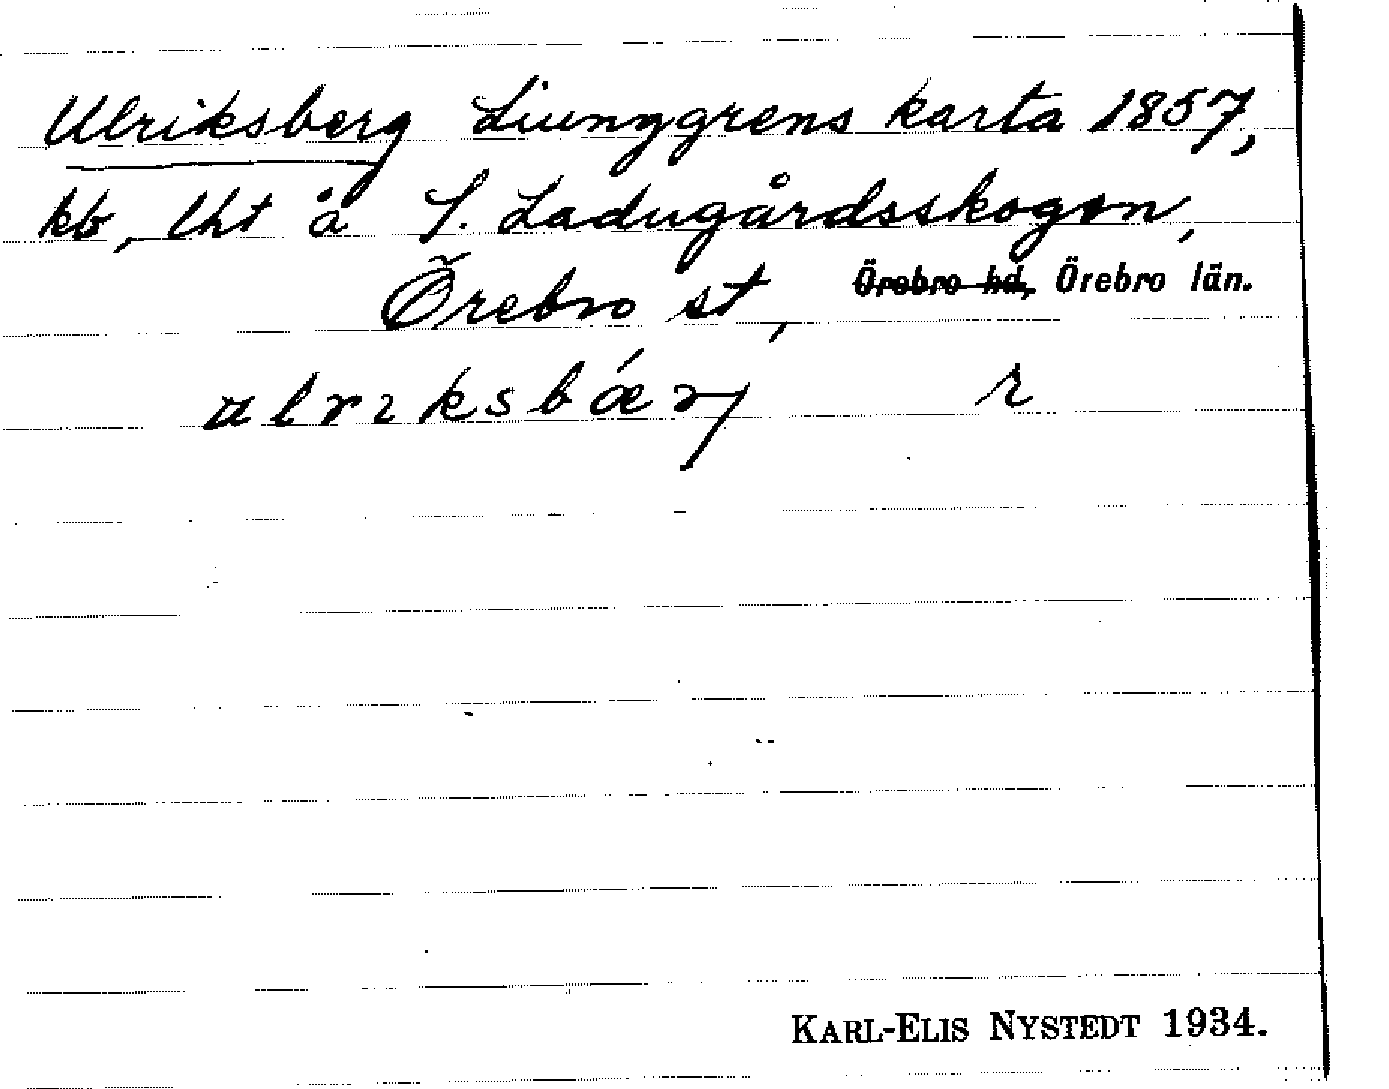 Ulriksberg Liunggrens karta 1857,
kb, lht å S. Ladugårdsskogen,
Örebro st, Örebro hd, Örebro län.
ulriksbǽrj r
KARL-ELIS NYSTEDT 1934.